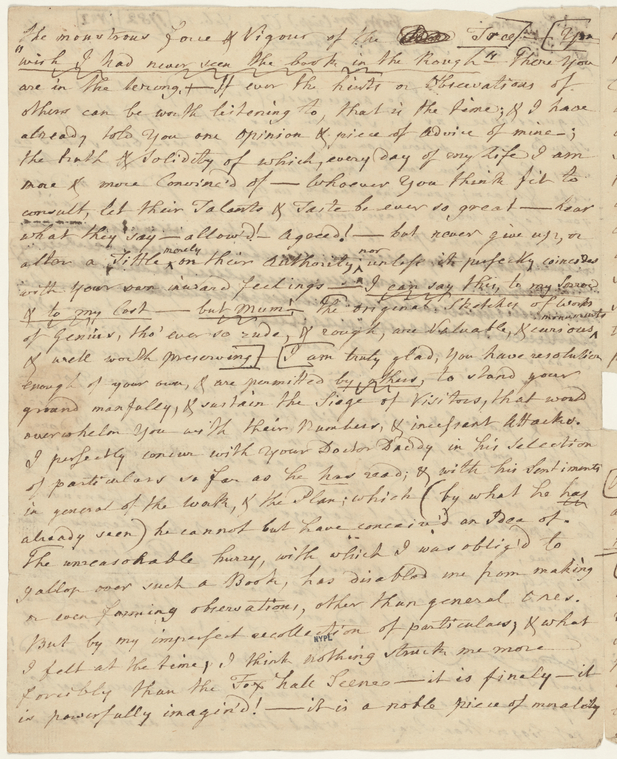 the monstrous Force & Vigour of the Tree [You
"wish I had never seen the book in the rough" There You
are in the wrong, — If ever the hints or Observations of
others can be worth listening to, that is the time; & I have
already told You one opinion & piece of advice of mine —;
the truth & Solidity of which, every day of my life I am
more & more Convinc'd of — Whoever You think fit to
consult, let their Talents & Taste be ever so great — hear
what they say — allow'd! — agreed! — but never give up, or
alter a tittle merely on their authority, nor unless it perfectly coincides
with Your own inward feelings — I can say this, to my sorrow
& to my cost — but Mum! The original Sketches of works
of Genius, tho' ever so rude, & rough, are valuable, & curious monuments
& well worth preserving] [I am truly glad, You have resolution
enough of your own, & are permitted by others, to stand your
ground manfully, & sustain the Siege of Visitors, that would
overwhelm You with their Numbers, & incessant Attacks.
I perfectly concur with your Doctor Daddy in his Selection
of particulars so far as he has read; & with his Sentiments
in general of the work, & the Plan; which (by what he has
already seen) he cannot but have conceiv'd an Idea of.
The unreasonable hurry, with which I was oblig'd to
gallop over such a Book, has disabled me from making
or even forming observations, other than general ones.
But by my imperfect recollection of particulars, & what
NYPL
I felt at the time, I think nothing struck me more
forcibly than the Fox Hall Scene — it is finely — it
is powerfully imagin'd! — it is a noble piece of morality